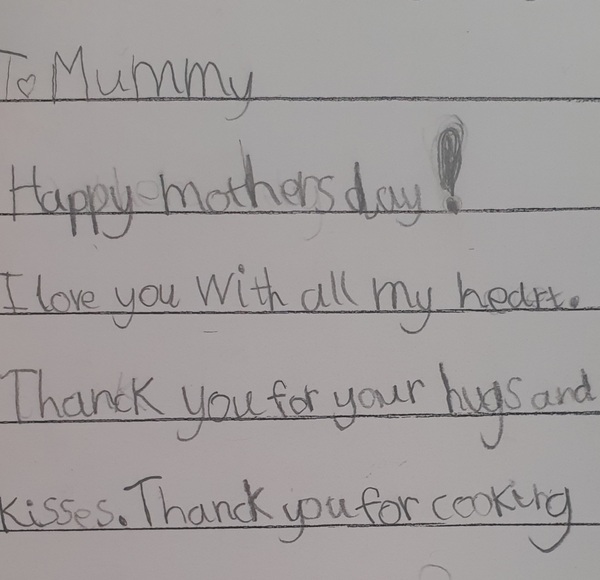 To Mummy
Happy mothers day!
I love you With all my heart.
Thanck you for your hugs and
kisses. Thanck you for cooking